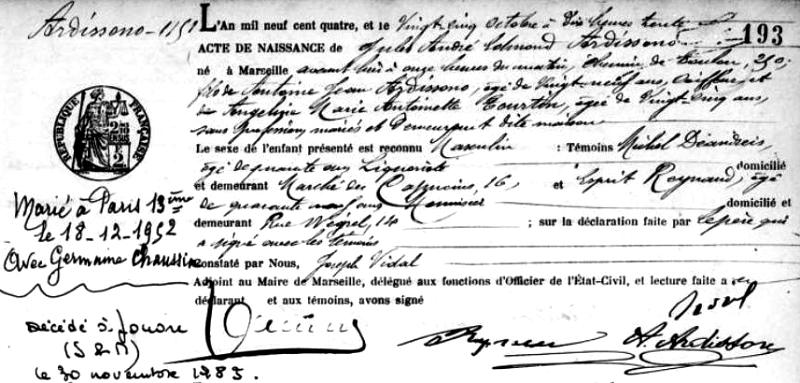 Ardissono - 1151
193
L'An mil neuf cent quatre, et le Vingt-cinq octobre à dix heures trente
ACTE DE NAISSANCE de Jules André Edmond Ardissono
né à Marseille avant hier à onze heures du matin, chemin de Toulon, 250;
fils de Antoine Jean Ardissono, âgé de vingt-neuf ans, Coiffeur, et
de Angeline Marie Antoinette Tourtin, âgée de vingt-cinq ans,
sans profession, mariés et demeurant dite maison
Le sexe de l'enfant présenté est reconnu Masculin : Témoins Michel Déandreis,
âgé de quarante ans Liquoriste domicilié
et demeurant Marché des Capucins, 16, et Esprit Reynaud, âgé
de quarante neuf ans Menuisier domicilié et
demeurant Rue 14 ; sur la déclaration faite par le père qui
a signé avec les témoins
Constaté par Nous, Joseph Vidal
Adjoint au Maire de Marseille, délégué aux fonctions d'Officier de l'État-Civil, et lecture faite au
déclarant et aux témoins, avons signé
A. Ardissono
RÉPUBLIQUE FRANÇAISE
Marié à Paris 13ème
le 18-12-1952
avec Germaine Chaussin
Décédé à Jouarre
(S & M)
le 30 novembre 1985.